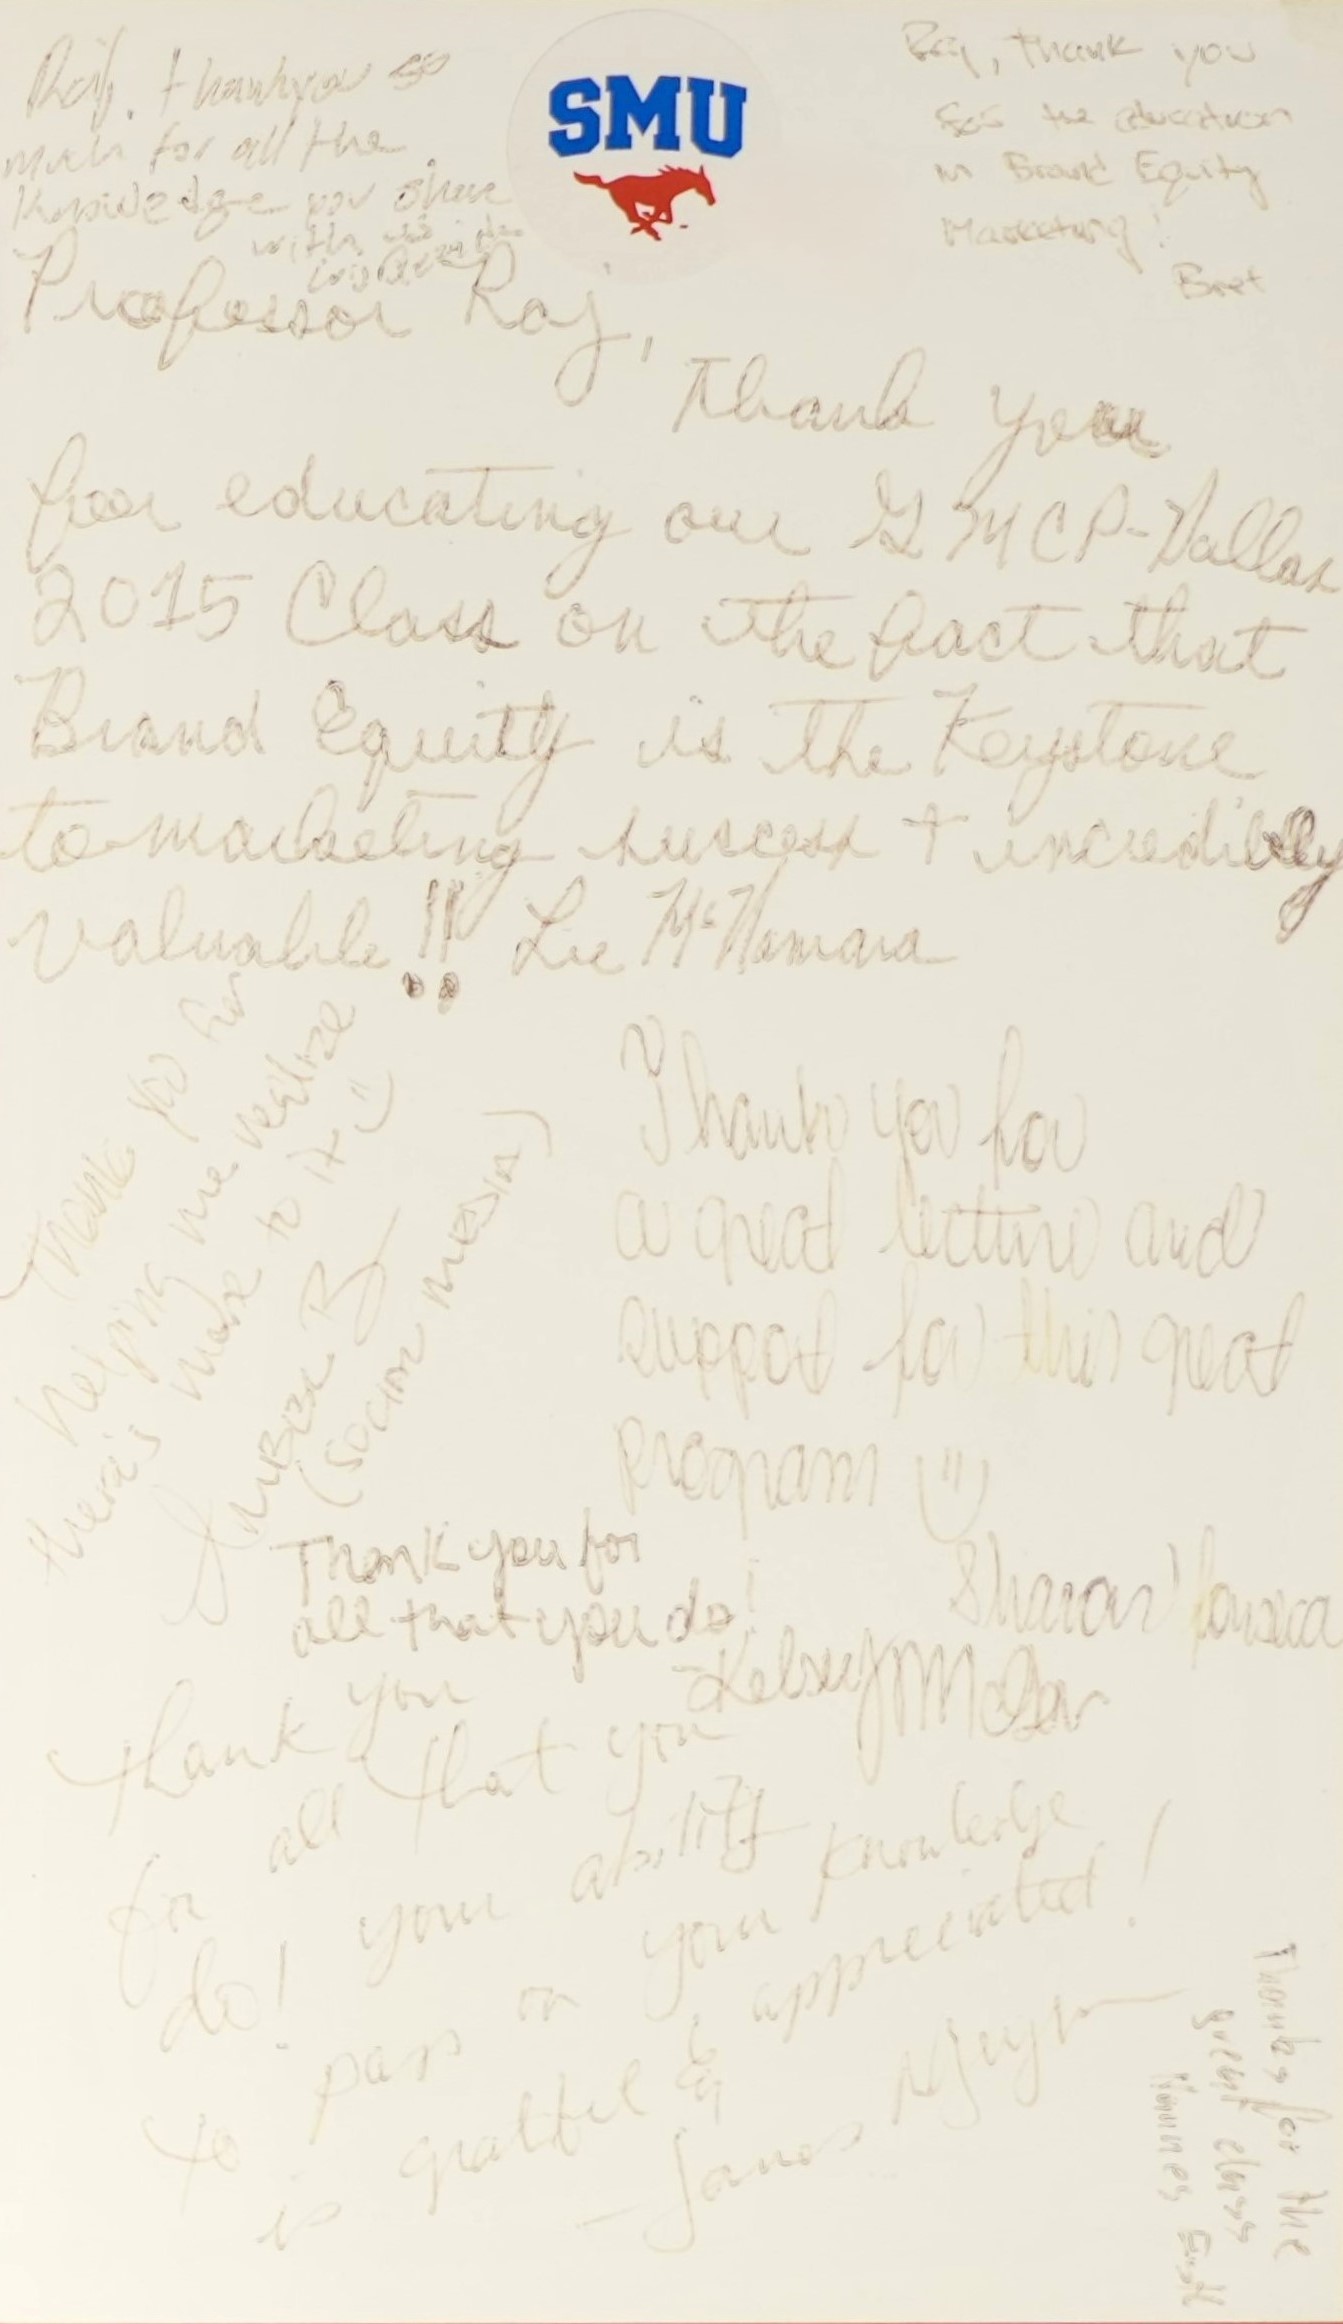 Raj, thank you so
much for all the
knowledge you share
with us
SMU
Raj, thank you
for the education
in Brand Equity
Marketing!
Bret
Professor Raj,
Thank you
for educating our GMCP-Dallas
2015 Class on the fact that
Brand Equity is the Keystone
to marketing success + incredibly
valuable!! Lee McNamara
Thank you for
helping me realize
there's more to it :)
(SOCIAL MEDIA)
Thank you for
a great lecture and
support for this great
program :)
Sharon Fonseca
Thank you for
all that you do!
-Kelsey
Thank you
for all that you
do! your ability
to pass on your knowledge
is grateful & appreciated!
- James Nguyen
Thanks for the
great class
Hannes